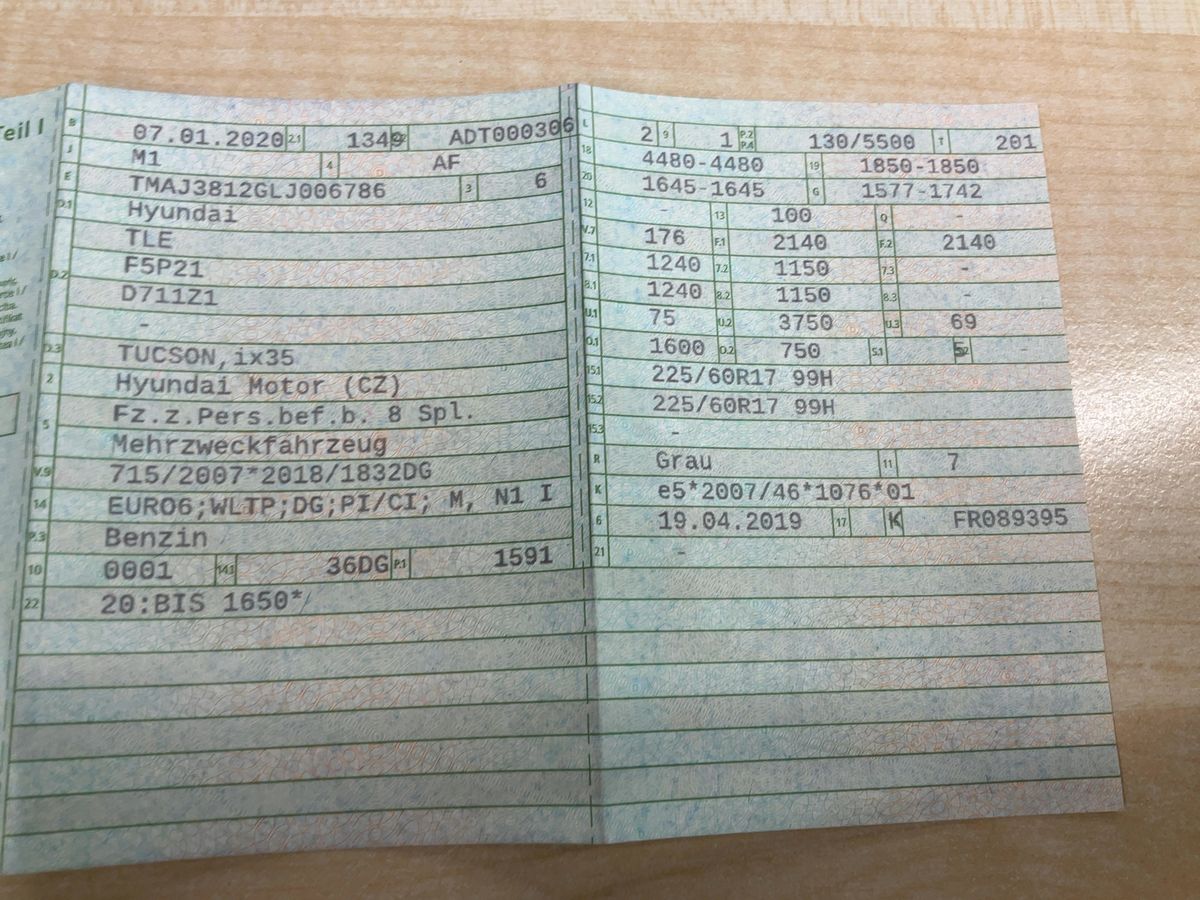 Teil I
B 07.01.2020 2.1 1349 2.2 ADT000306
J M1 4 AF
E TMAJ3812GLJ006786 3 6
D.1 Hyundai
TLE
D.2 F5P21
D711Z1
-
D.3 TUCSON,ix35
2 Hyundai Motor (CZ)
5 Fz.z.Pers.bef.b. 8 Spl.
Mehrzweckfahrzeug
V.9 715/2007*2018/1832DG
14 EURO6;WLTP;DG;PI/CI; M, N1 I
P.3 Benzin
10 0001 14.1 36DG P.1 1591
22 20:BIS 1650*
L 2 9 1 P.2 P.4 130/5500 T 201
18 4480-4480 19 1850-1850
20 1645-1645 G 1577-1742
12 - 13 100 Q -
V.7 176 F.1 2140 F.2 2140
7.1 1240 7.2 1150 7.3 -
8.1 1240 8.2 1150 8.3 -
U.1 75 U.2 3750 U.3 69
O.1 1600 O.2 750 S.1 5 S.2
15.1 225/60R17 99H
15.2 225/60R17 99H
15.3 -
R Grau 11 7
K e5*2007/46*1076*01
6 19.04.2019 17 K FR089395
21 -